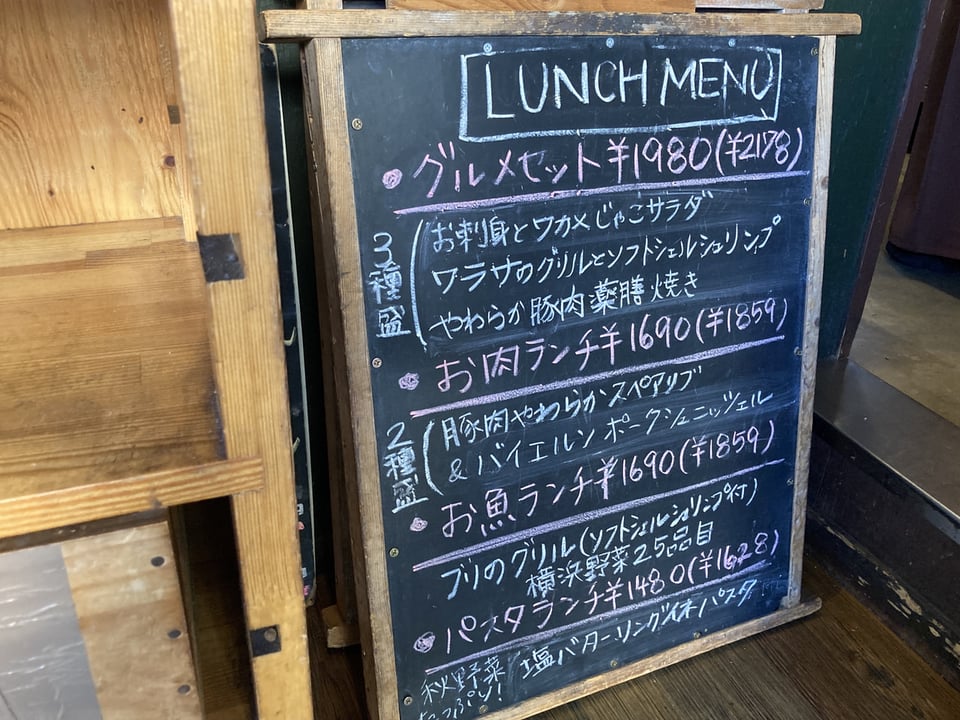 LUNCH MENU
グルメセット ¥1980(¥2178)
3種盛
お刺身とワカメじゃこサラダ
ワラサのグリルとソフトシェルシュリンプ
やわらか豚肉薬膳焼き
お肉ランチ ¥1690(¥1859)
2種盛
豚肉やわらかスペアリブ
& バイエルンポークシュニッツェル
お魚ランチ ¥1690(¥1859)
ブリのグリル(ソフトシェルシュリンプ付)
横浜野菜25品目
パスタランチ ¥1480(¥1628)
秋野菜
たっぷり!
塩バターリングイネパスタ